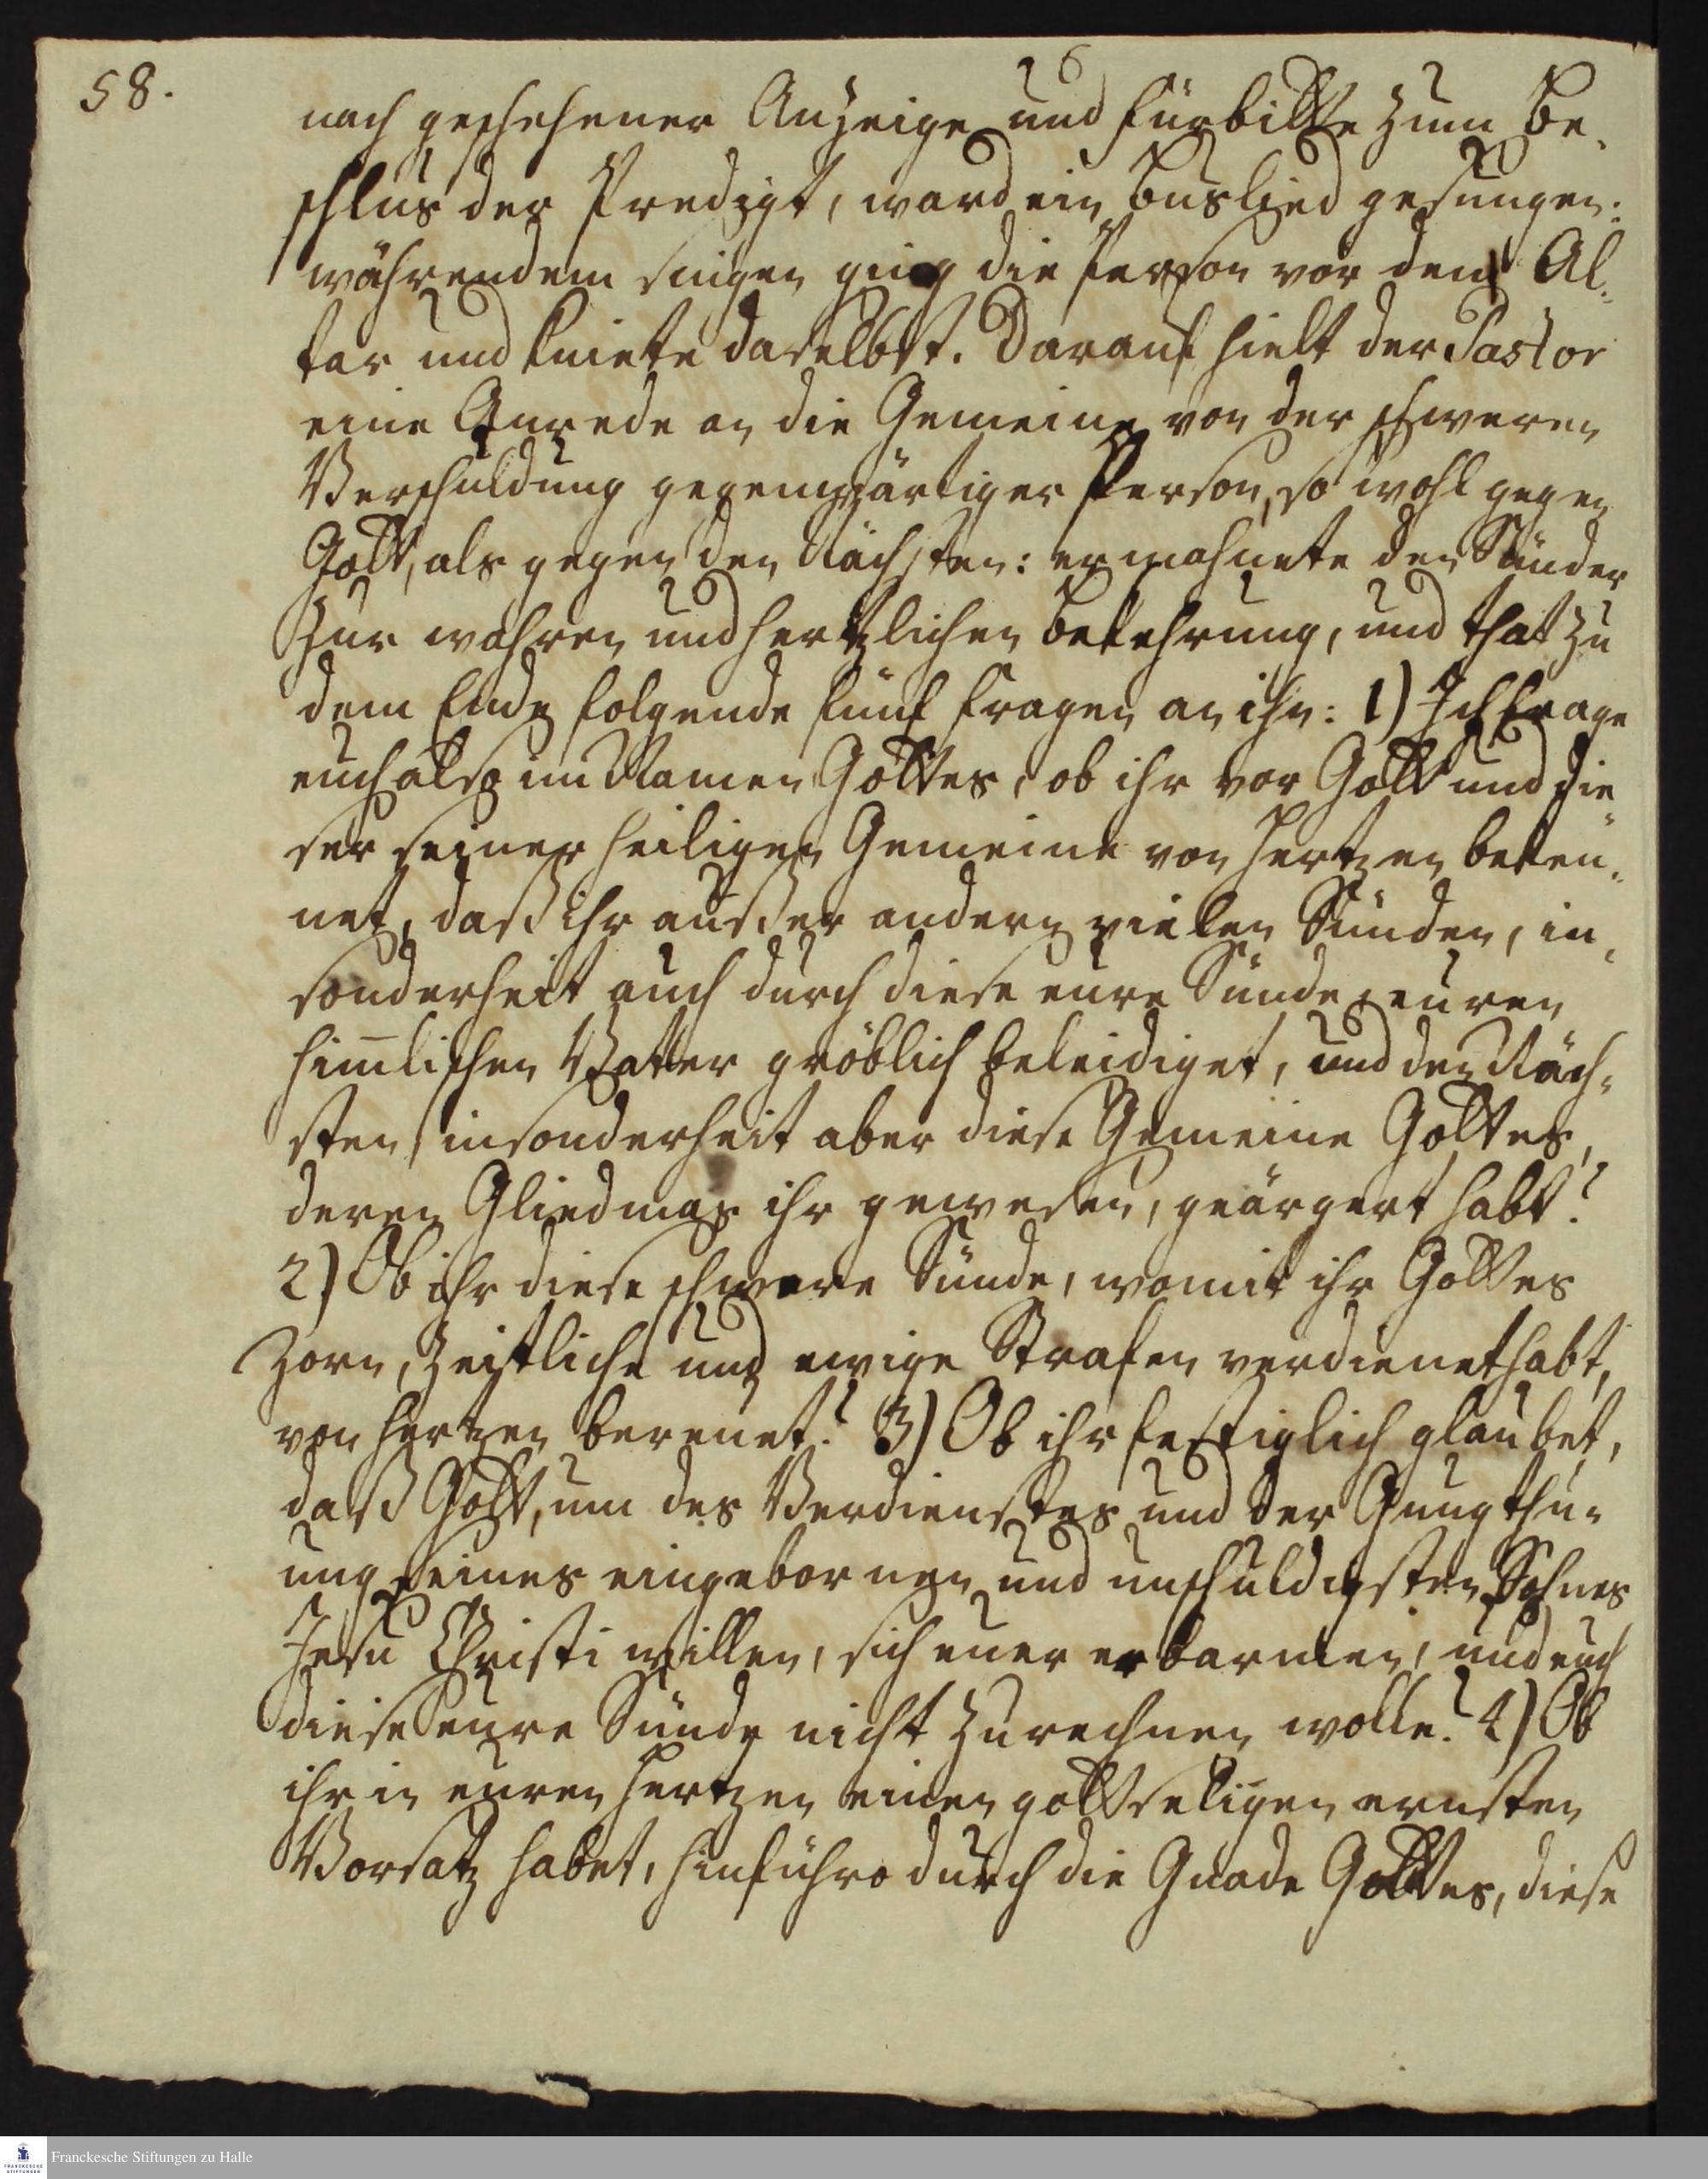 58.
nach geschehener Anzeige und Fürbitte zum Be-
schlus der Predigt, ward ein Buslied gesungen:
währendem singen ging die Person vor den Al-
tar und kniete daselbst. Darauf hielt der Pastor
eine Anrede an die Gemeine von der schweren
Verschuldung gegenwärtiger Person, so wohl gegen
Gott, als gegen den Nächsten: ermahnete den Sünder
zur wahren und hertzlichen Bekehrung, und that zu
dem Ende folgende fünf Fragen an ihn: 1) Ich frage
euch also im Namen Gottes, ob ihr vor Gott und die
ser seiner heiligen Gemeine von Hertzen beken-
net, daß ihr außer andern vielen Sünden, in-
sonderheit auch durch diese eure Sünde euren
him̄lischen Vatter gröblich beleidiget, und den Näch-
sten insonderheit aber diese Gemeine Gottes,
deren Gliedmas ihr gewesen, geärgert habt?
2) Ob ihr diese schwere Sünde, womit ihr Gottes
Zorn, Zeitliche und ewige Strafen verdienet habt,
von Hertzen bereuet? 3) Ob ihr festiglich glaubet,
daß Gott, um des Verdienstes und der Gnugthu-
ung seines eingebornen und unschuldigsten Sohnes
Jesu Christi willen, sich euer erbarmen, und euch
diese eure Sünde nicht zurechnen wolle? 4) Ob
ihr in euren Hertzen einen gottseligen ernsten
Vorsatz habet, hinführo durch die Gnade Gottes, diese
Franckesche Stiftungen zu Halle